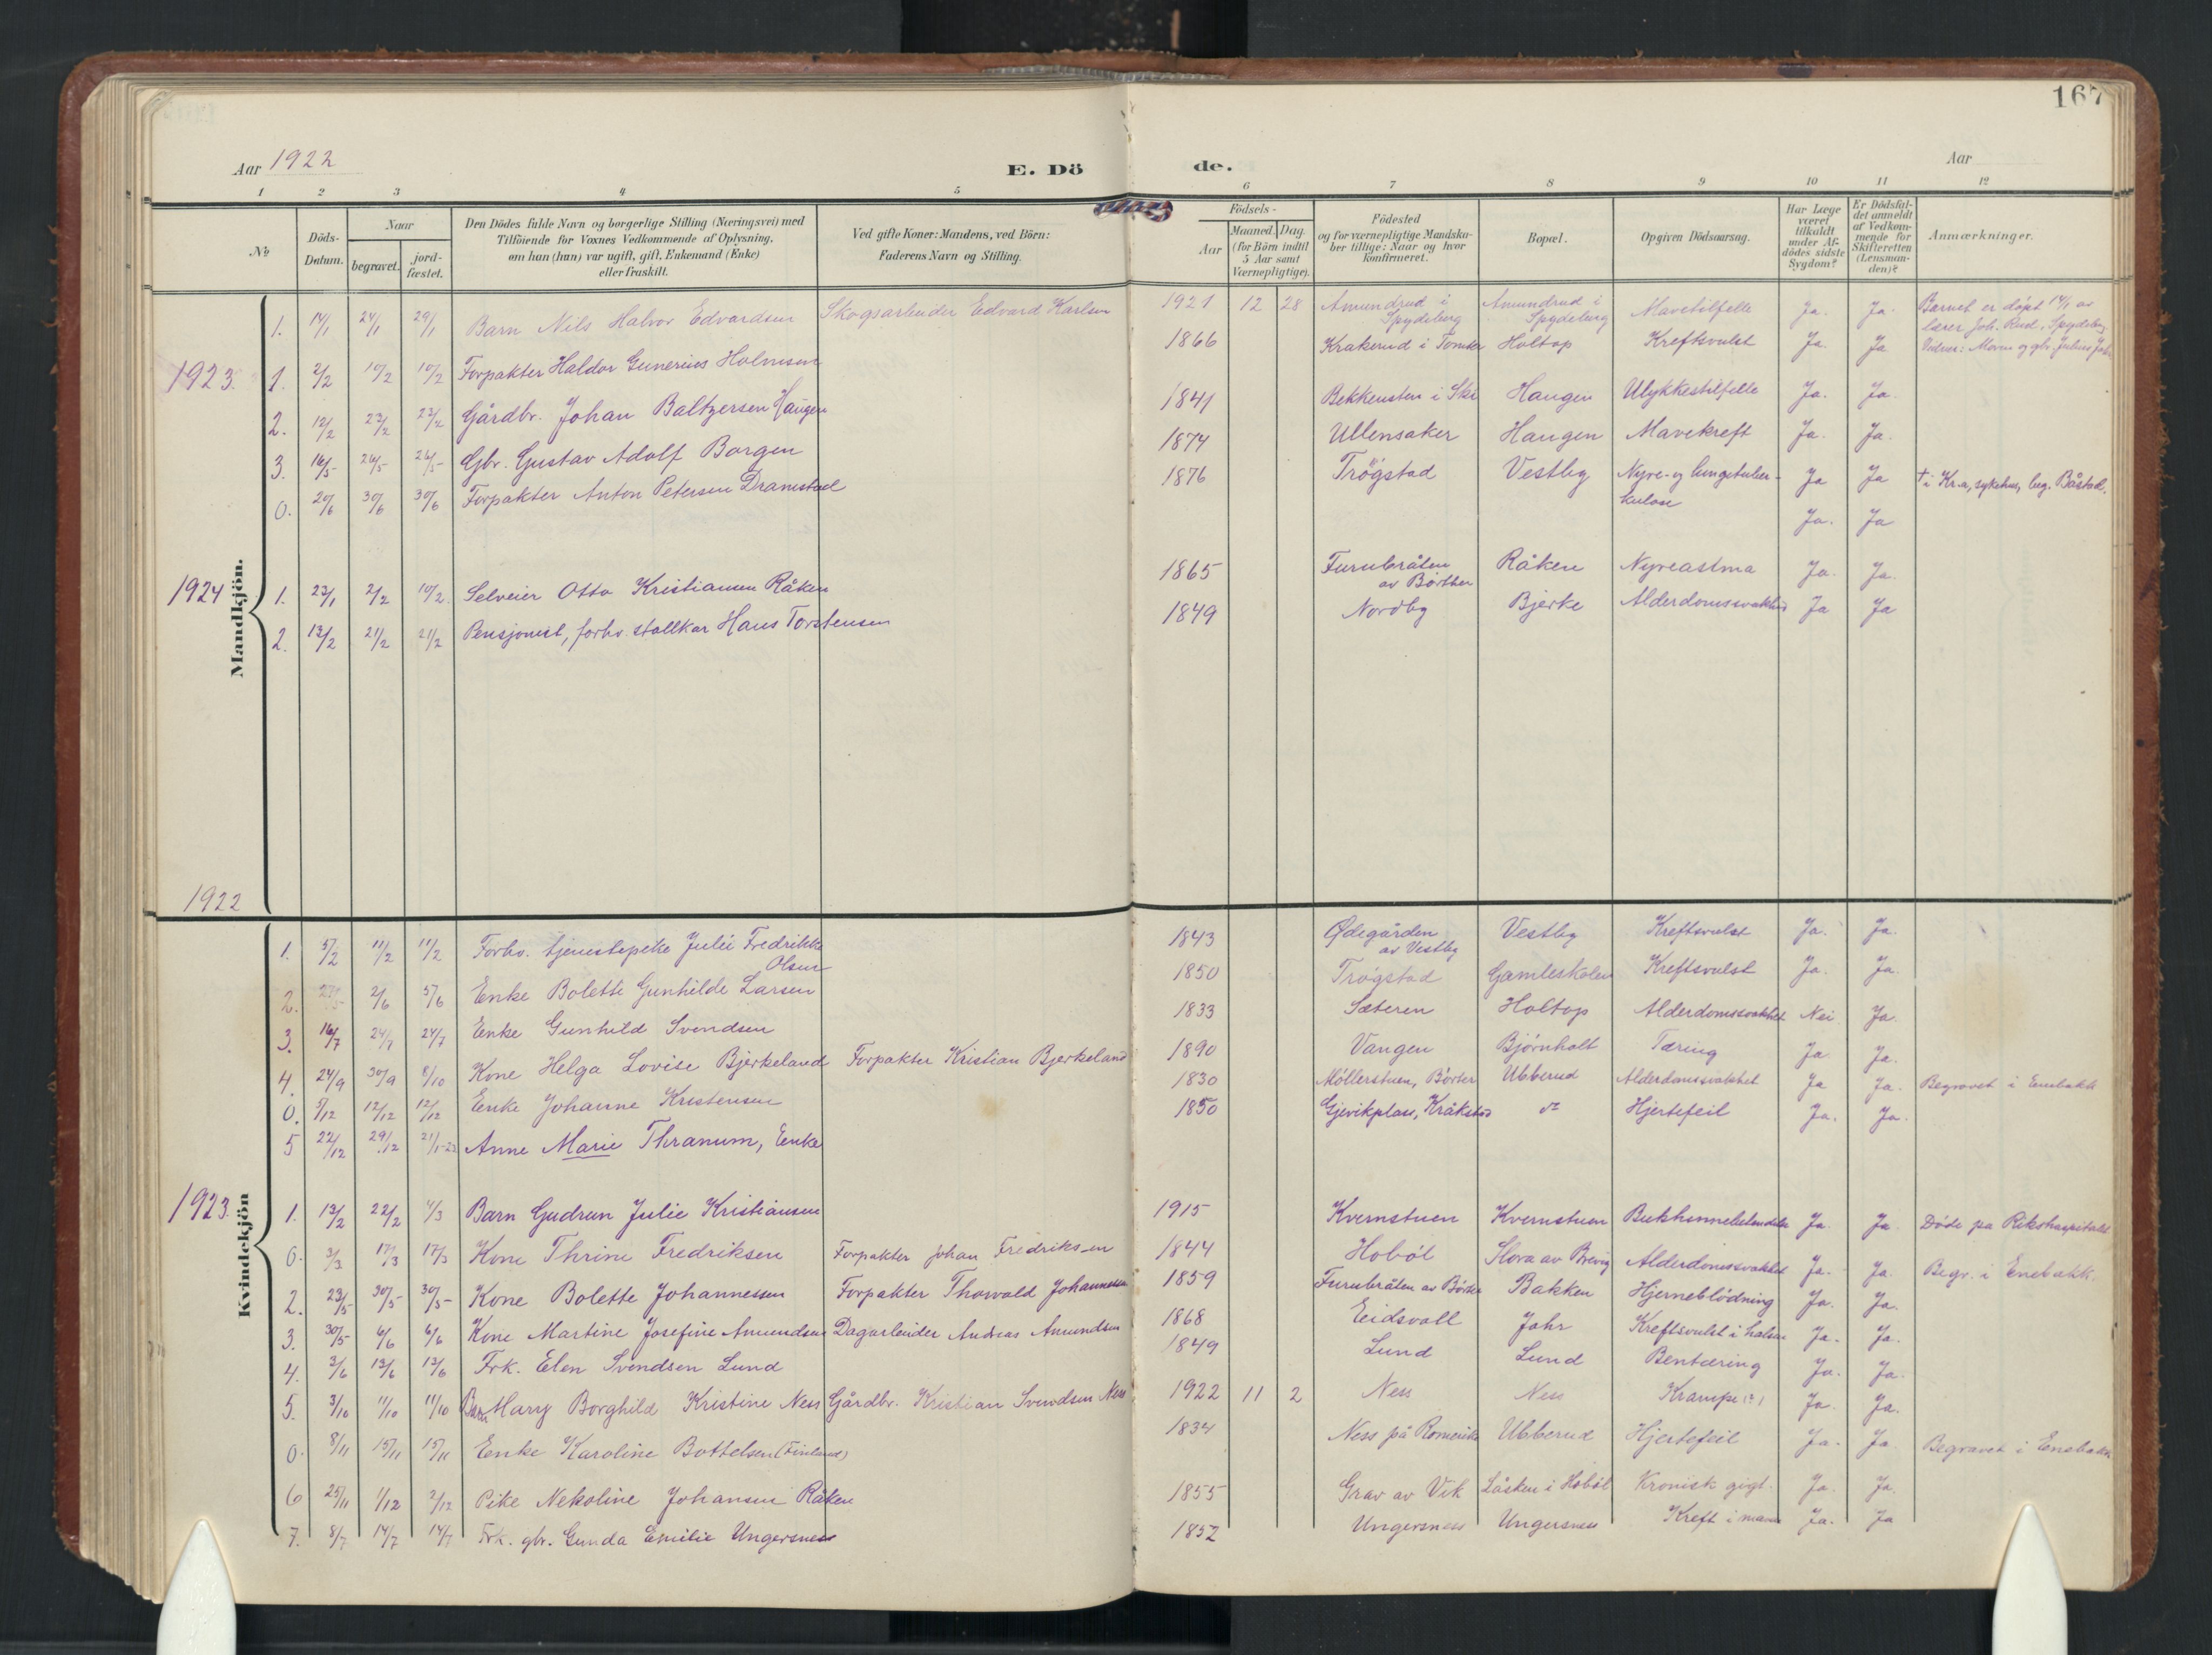 167
Aar 1922
E. Dö de.
Aar
1 2 3 4 5 6 7 8 9 10 11 12
№
Döds-Datum.
Naar
begravet.
jordfæstet.
Den Dödes fulde Navn og borgerlige Stilling (Næringsvei) med
Tilföiende for Voxnes Vedkommende af Oplysning,
om han (hun) var ugift, gift, Enkemand (Enke)
eller fraskilt.
Ved gifte Koner: Mandens, ved Börn:
Faderens Navn og Stilling.
Födsels-
Aar
Maaned. Dag.
(for Börn indtil
5 Aar samt
Værnepligtige).
Födested
og for værnepligtige Mandskaber tillige: Naar og hvor
konfirmeret.
Bopæl.
Opgiven Dödsaarsag.
Har Læge været tilkaldt under Afdödes sidste Sygdom?
Er Dödsfaldet anmeldt af Vedkommende for Skifteretten (Lensmanden)?
Anmærkninger.
Mandkjön.
1. 14/1 24/1 29/1 Barn Nils Halvor Edvardsen Skogsarbeider Edvard Karlsen 1921 12 28 Amundrud i Spydeberg Amundrud i Spydeberg Mavetilfelle Ja. Ja. Barnet er døpt 14/1 av
lærer Joh. Rud, Spydeberg
1923. 1. 2/2 10/2 10/2 Forpakter Haldor Gunerius Holmsen 1866 Krakerud i Tomter Holtop Kreftsvulst Ja. Ja
2. 12/2 23/2 23/2 Gårdbr. Johan Baltzersen Haugen 1841 Bekkensten i Ski Haugen Ulykkestilfelle Ja. Ja.
3. 16/5 26/5 26/5 Gbr. Gustav Adolf Borgen 1874 Ullensaker Haugen Mavekreft Ja. Ja.
0. 20/6 30/6 30/6 Forpakter Anton Petersen Dramstad 1876 Trögstad Vestby Nyre- og lungetuberkulose Ja Ja † i Kr.a, sykehus, beg. Båstad.
Ja. Ja
1924 1. 23/1 2/2 10/2. Selveier Otto Kristiansen Råken 1865 Furubråten av Børther Råken Nyreastma Ja. Ja.
2. 13/2 21/2 21/2 Pensjonist, forhv. stallkar Hans Torstensen 1849 Nordby Bjerke Alderdomssvakhet Ja Ja
1922
Kvindekjön
1. 5/2 11/2 11/2 Forhv. tjenestepike Julie Fredrikke Olsen 1843 Ødegården av Vestby Vestby Kreftsvulst Ja. Ja.
2. 2/6 5/6 Enke Bolette Gunhilde Larsen 1850 Trøgstad Gamleskolen Kreftsvulst Ja. Ja.
3. 16/7 24/7 24/7 Enke Gunhild Svendsen 1833 Sæteren Holtop Alderdomssvakhet Nei Ja.
4. 24/9 30/9 8/10 Kone Helga Lovise Bjerkeland Forpakter Kristian Bjerkeland 1890 Vangen Bjørnholt Tæring Ja Ja.
0. 5/12 12/12 12/12 Enke Johanne Kristensen 1830 Møllerstuen, Børter Ubberud Alderdomssvakhet Ja Ja. Begravet i Enebakk
5 22/12 29/12 21/1-23 Anne Marie Thranum, Enke 1850 Gjevikplass, Kråkstad do Hjertefeil Ja. Ja.
1923. 1. 13/2 22/2 4/3 Barn Gudrun Julie Kristiansen 1915 Kvernstuen Kvernstuen Bukhinnebetendelse Ja Ja. Døde pa Rikshospitalet
0. 3/3 17/3 17/3 Kone Thrine Fredriksen Forpakter Johan Fredriksen 1844 Hobøl Slora av Brevig Alderdomssvakhet Ja. Ja Begr. i Enebakk.
2. 23/5 30/5 30/5 Kone Bolette Johannessen Forpakter Thorvald Johannessen 1859 Furubråten av Børter Bakken Hjerneblödning Ja. Ja.
3. 30/5 6/6 6/6 Kone Martine Josefine Amundsen Dagarbeider Andreas Amundsen 1868 Eidsvoll Jahr Kreftsvulst i halsen Ja. Ja.
4. 3/6 13/6 13/6 Frk. Elen Svendsen Lund 1849 Lund Lund Bentæring Ja. Ja.
5. 3/10 11/10 11/10 Barn Mary Borghild Kristine Ness Gårdbr. Kristian Svendsen Ness 1922 11 2 Ness Ness Krampe (?) Ja. Ja.
0. 8/11 15/11 15/11 Enke Karoline Bottelsen (Finland) 1834 Ness på Romerike Ubberud Hjertefeil Ja. Ja. Begravet i Enebakk
6 25/11 1/12 2/12 Pike Nekoline Johansen Råken 1855 Grav av Vik Låsken i Hobøl Kronisk gigt. Ja. Ja.
7. 8/7 14/7 14/7 Frk. gbr. Gunda Emilie Ungersness 1852 Ungersness Ungersness Kreft i maven Ja. Ja